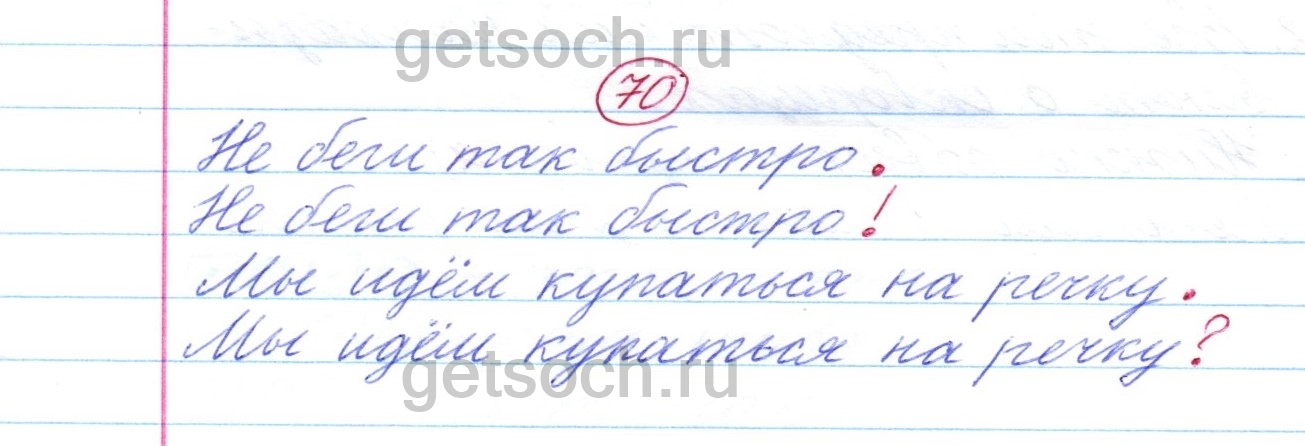 getsoch.ru
70
Не беги так быстро.
Не беги так быстро!
Мы идём купаться на речку.
Мы идём купаться на речку?
getsoch.ru